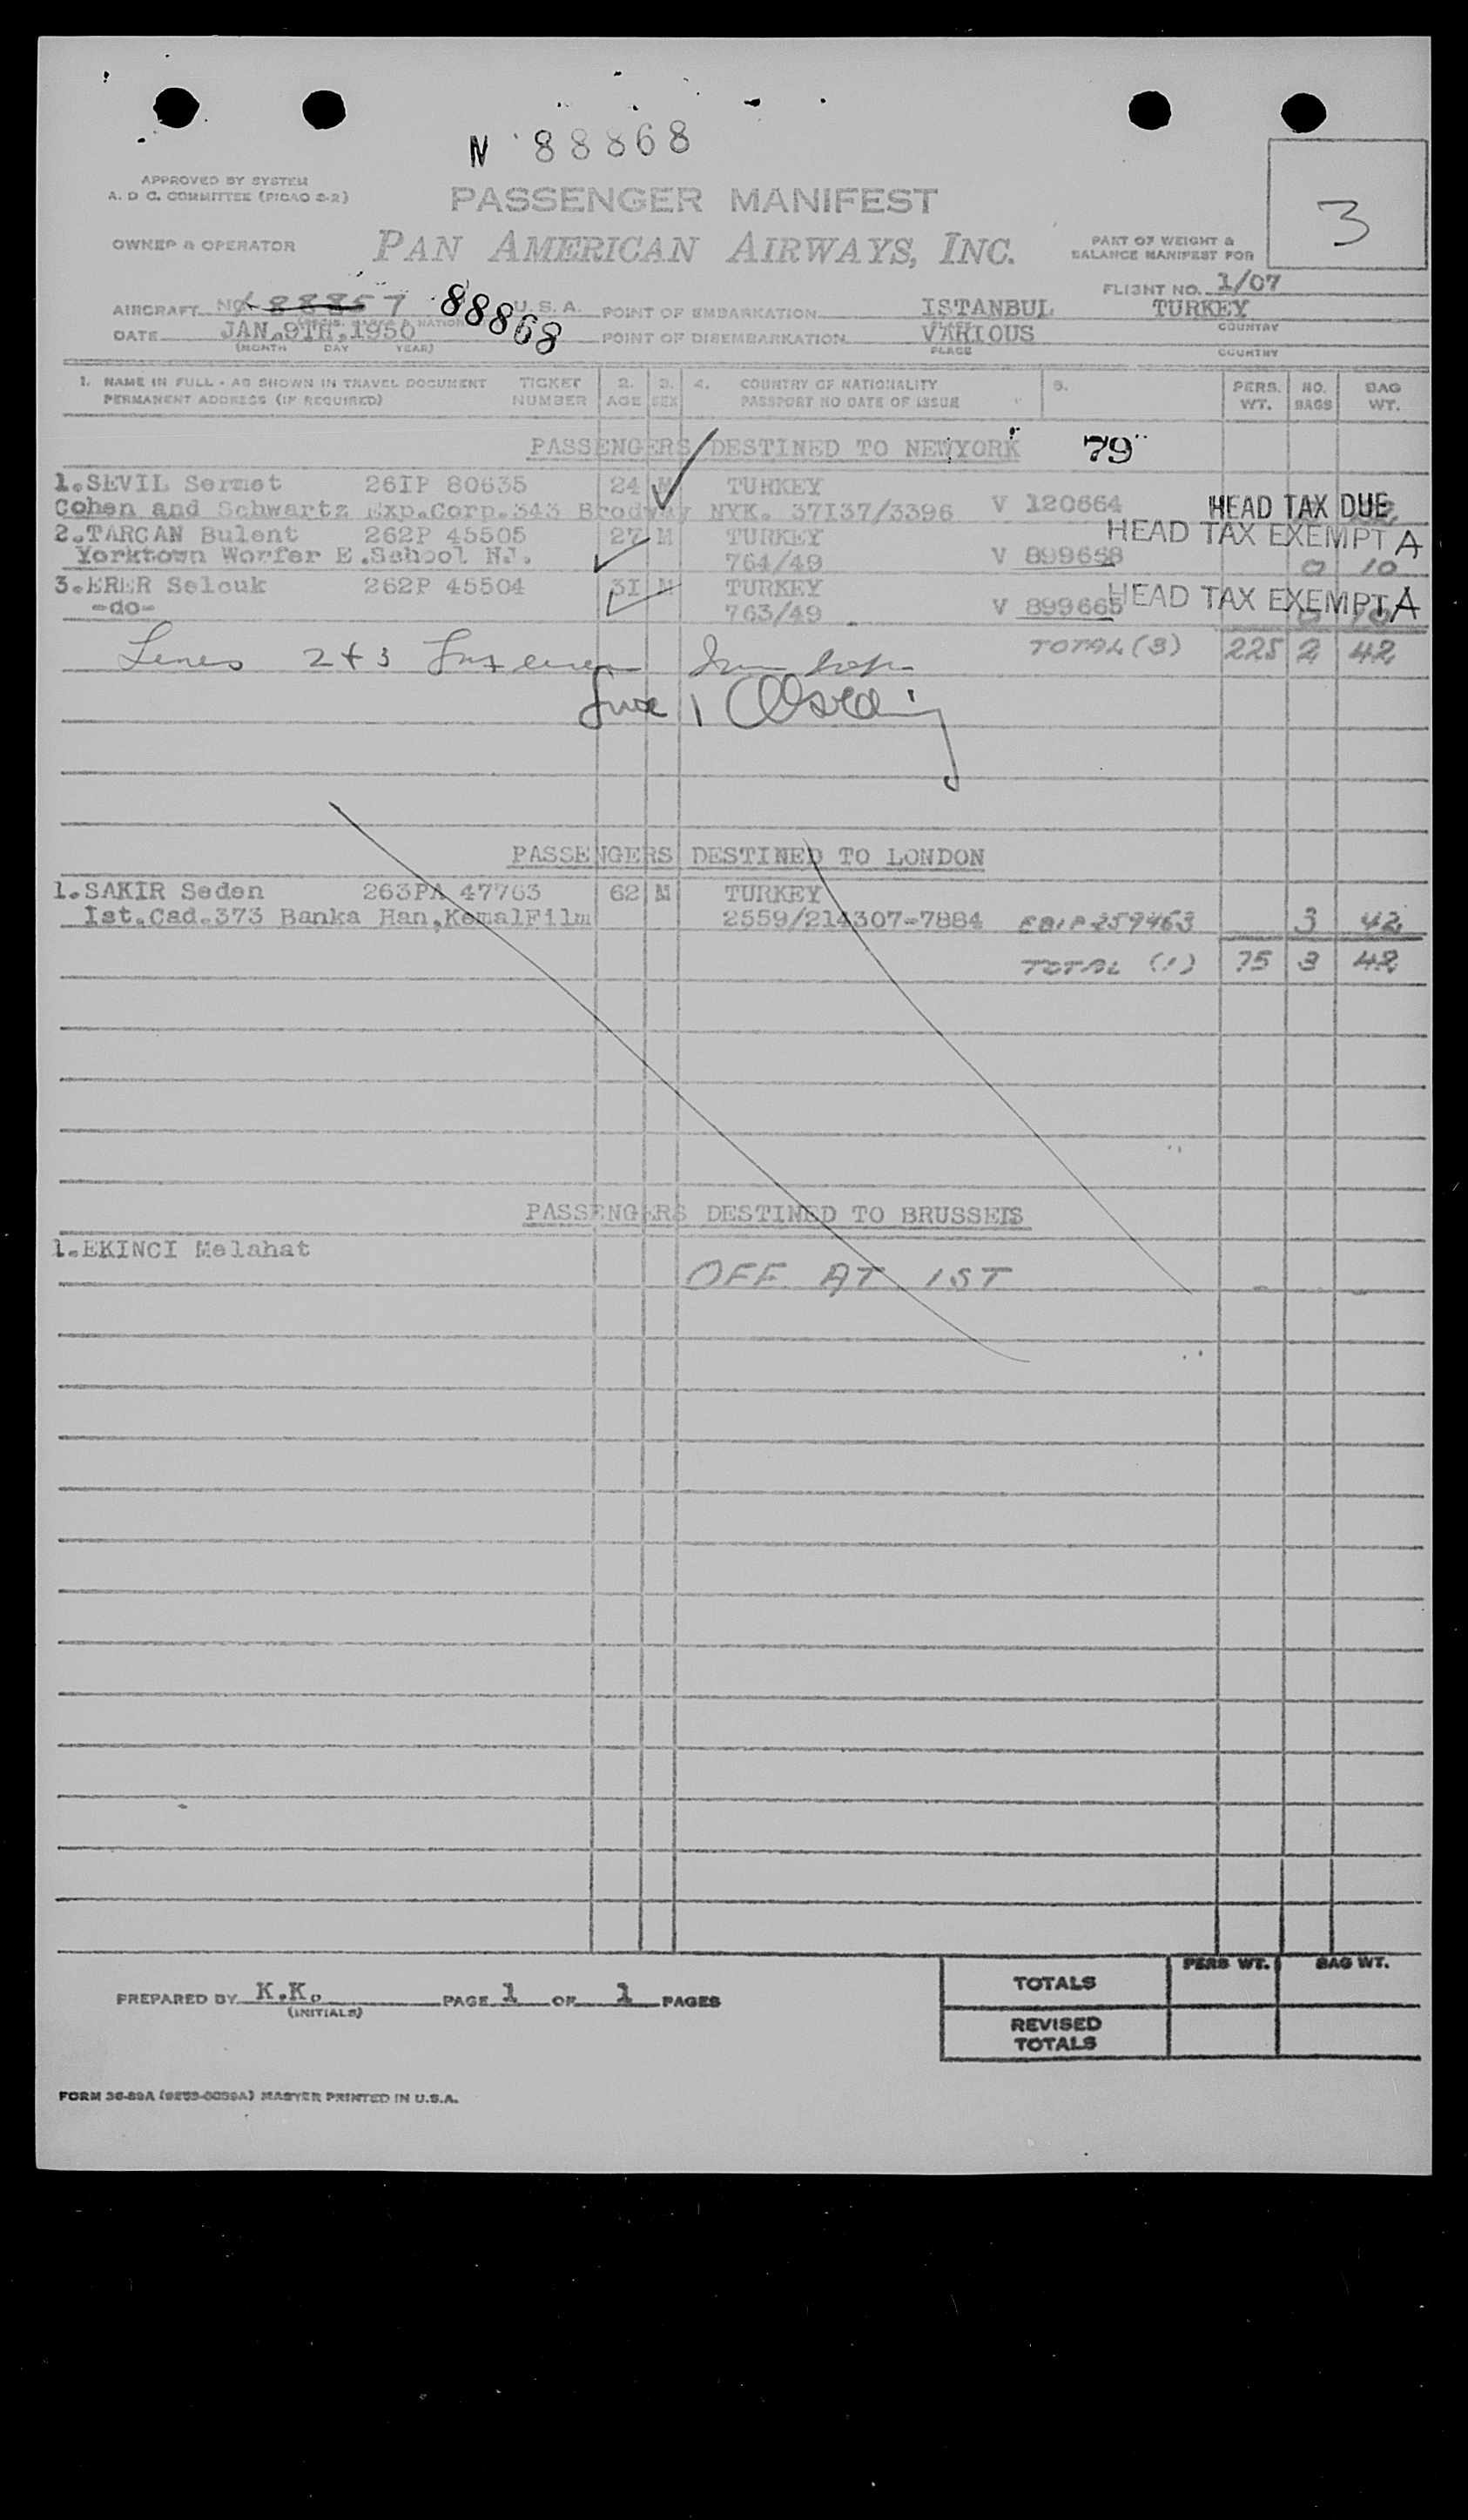 N 88868
APPROVED BY SYSTEM
A. D C. COMMITTEE (PICAO S-2)
PASSENGER MANIFEST
3
OWNER & OPERATOR PAN AMERICAN AIRWAYS, INC.
PART OF WEIGHT &
BALANCE MANIFEST FOR
FLIGHT NO. 1/07
AIRCRAFT 88857 88868 U. S. A. POINT OF EMBARKATION ISTANBUL TURKEY
PLACE COUNTRY
DATE JAN.9TH.1950 POINT OF DISEMBARKATION VARIOUS
(MONTH DAY YEAR) PLACE COUNTRY
1. NAME IN FULL - AS SHOWN IN TRAVEL DOCUMENT TICKET 2. 3. 4. COUNTRY OF NATIONALITY PERS. NO. BAG
PERMANENT ADDRESS (IF REQUIRED) NUMBER AGE SEX PASSPORT NO DATE OF ISSUE WT. BAGS WT.
PASSENGERS DESTINED TO NEWYORK 79
1.SEVIL Sermet 26IP 80635 24 M TURKEY
Cohen and Schwartz Exp.Corp.343 Brodway NYK. 37I37/3396 V 120664 HEAD TAX DUE
2.TARCAN Bulent 262P 45505 27 M TURKEY HEAD TAX EXEMPT A
Yorktown Worfer E.School NJ. 764/49 V 899658 0 10
3.ERER Selcuk 262P 45504 3I M TURKEY
-do- 763/49 V 899665 HEAD TAX EXEMPT A
TOTAL (3) 225 2 42
Lines 2 + 3
Line 1
PASSENGERS DESTINED TO LONDON
1.SAKIR Seden 263PA 47763 62 M TURKEY
Ist.Cad.373 Banka Han,KemalFilm 2559/214307-7884 3 42
TOTAL (1) 75 3 42
PASSENGERS DESTINED TO BRUSSELS
1.EKINCI Melahat
OFF AT IST
PERS WT. BAG WT.
TOTALS
PREPARED BY K.K. PAGE 1 OF 1 PAGES
(INITIALS)
REVISED
TOTALS
MASTER PRINTED IN U.S.A.